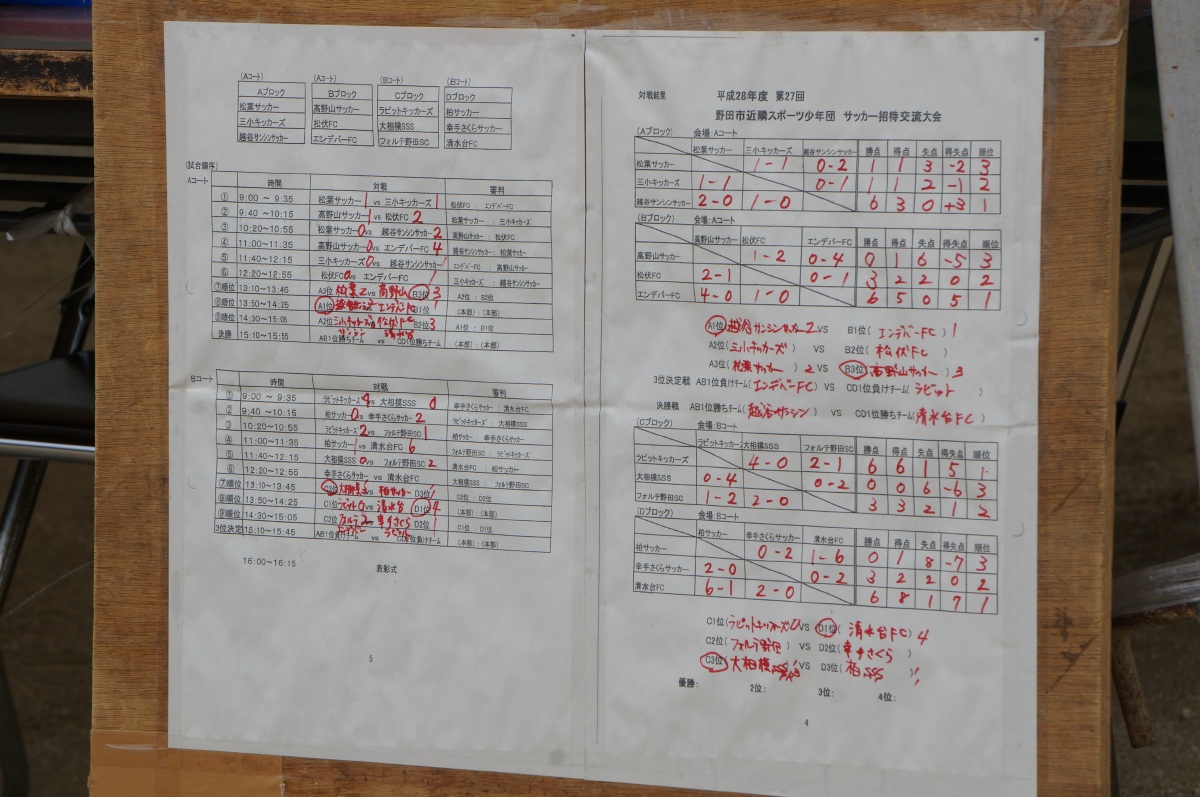 (Aコート) (Aコート) (Bコート) (Bコート)
Aブロック Bブロック Cブロック Dブロック
松葉サッカー 高野山サッカー ラビットキッカーズ 柏サッカー
三小キッカーズ 松伏FC 大相模SSS 幸手さくらサッカー
越谷サンシンサッカー エンデバーFC フォルテ野田SC 清水台FC
(試合順序)
Aコート 時間 対戦 審判
① 9:00 ~ 9:35 松葉サッカー 1 vs 三小キッカーズ 1 松伏FC エンデバーFC
② 9:40 ~ 10:15 高野山サッカー 1 vs 松伏FC 2 松葉サッカー : 三小キッカーズ
③ 10:20~10:55 松葉サッカー 0 vs 越谷サンシンサッカー 2 高野山サッカー : 松伏FC
④ 11:00~11:35 高野山サッカー 0 vs エンデバーFC 4 越谷サンシンサッカー : 松葉サッカー
⑤ 11:40~12:15 三小キッカーズ 0 vs 越谷サンシンサッカー 1 エンデバーFC : 高野山サッカー
⑥ 12:20~12:55 松伏FC 0 vs エンデバーFC 1 三小キッカーズ 越谷サンシンサッカー
⑦順位 13:10~13:45 A3位 松葉 2 vs 高野山 B3位 3 A2位 : B2位
⑧順位 13:50~14:25 A1位 越谷サンシン 2 エンデバFC B1位 1 (本部) : (本部)
⑨順位 14:30~15:05 A2位 三小キッカーズ 松伏FC B2位 3 A1位 : B1位
決勝 15:10~15:55 AB1位勝ちチーム サンシン vs 清水台 CD1位勝ちチーム (本部) : (本部)
Bコート 時間 対戦 審判
① 9:00 ~ 9:35 ラビットキッカーズ 4 vs 大相模SSS 0 幸手さくらサッカー : 清水台FC
② 9:40 ~ 10:15 柏サッカー 0 vs 幸手さくらサッカー 2 ラビットキッカーズ : 大相模SSS
③ 10:20~10:55 ラビットキッカーズ 2 vs フォルテ野田SC 1 柏サッカー : 幸手さくらサッカー
④ 11:00~11:35 柏サッカー 1 vs 清水台FC 6 フォルテ野田SC : ラビットキッカーズ
⑤ 11:40~12:15 大相模SSS 0 vs フォルテ野田SC 2 清水台FC : 柏サッカー
⑥ 12:20~12:55 幸手さくらサッカー vs 清水台FC 大相模SSS : フォルテ野田SC
⑦順位 13:10~13:45 C3位 大相模 vs 柏サッカー D3位 1 C2位 : D2位
⑧順位 13:50~14:25 C1位 ラビット 0 vs 清水台 D1位 4 (本部) : (本部)
⑨順位 14:30~15:05 C2位 フォルテ 2 幸手さくら D2位 1 C1位 : D1位
3位決定 15:10~15:45 AB1位負けチーム エンデバー vs ラビット CD1位負けチーム (本部) : (本部)
16:00~16:15 表彰式
5
対戦結果 平成28年度 第27回
野田市近隣スポーツ少年団 サッカー招待交流大会
(Aブロック) 会場:Aコート
松葉サッカー 三小キッカーズ 越谷サンシンサッカー 勝点 得点 失点 得失点 順位
松葉サッカー 1-1 0-2 1 1 3 -2 3
三小キッカーズ 1-1 0-1 1 1 2 -1 2
越谷サンシンサッカー 2-0 1-0 6 3 0 +3 1
(Bブロック) 会場:Aコート
高野山サッカー 松伏FC エンデバーFC 勝点 得点 失点 得失点 順位
高野山サッカー 1-2 0-4 0 1 6 -5 3
松伏FC 2-1 0-1 3 2 2 0 2
エンデバーFC 4-0 1-0 6 5 0 5 1
A1位(越谷サンシンサッカー 2 VS B1位( エンデバーFC ) 1
A2位(三小キッカーズ ) VS B2位( 松伏FC )
A3位(松葉サッカー ) 2 VS B3位(高野山サッカー ) 3
3位決定戦 AB1位負けチーム(エンデバーFC ) VS CD1位負けチーム( ラビット )
決勝戦 AB1位勝ちチーム(越谷サンシン ) VS CD1位勝ちチーム(清水台FC )
(Cブロック) 会場:Bコート
ラビットキッカーズ 大相模SSS フォルテ野田SC 勝点 得点 失点 得失点 順位
ラビットキッカーズ 4-0 2-1 6 6 1 5 1
大相模SSS 0-4 0-2 0 0 6 -6 3
フォルテ野田SC 1-2 2-0 3 3 2 1 2
(Dブロック) 会場:Bコート
柏サッカー 幸手さくらサッカー 清水台FC 勝点 得点 失点 得失点 順位
柏サッカー 0-2 1-6 0 1 8 -7 3
幸手さくらサッカー 2-0 0-2 3 2 2 0 2
清水台FC 6-1 2-0 6 8 1 7 1
C1位(ラビットキッカーズ 0 VS D1位( 清水台FC ) 4
C2位(フォルテ野田 ) VS D2位(幸手さくら )
C3位(大相模 VS D3位( 柏
優勝: 2位: 3位: 4位:
4